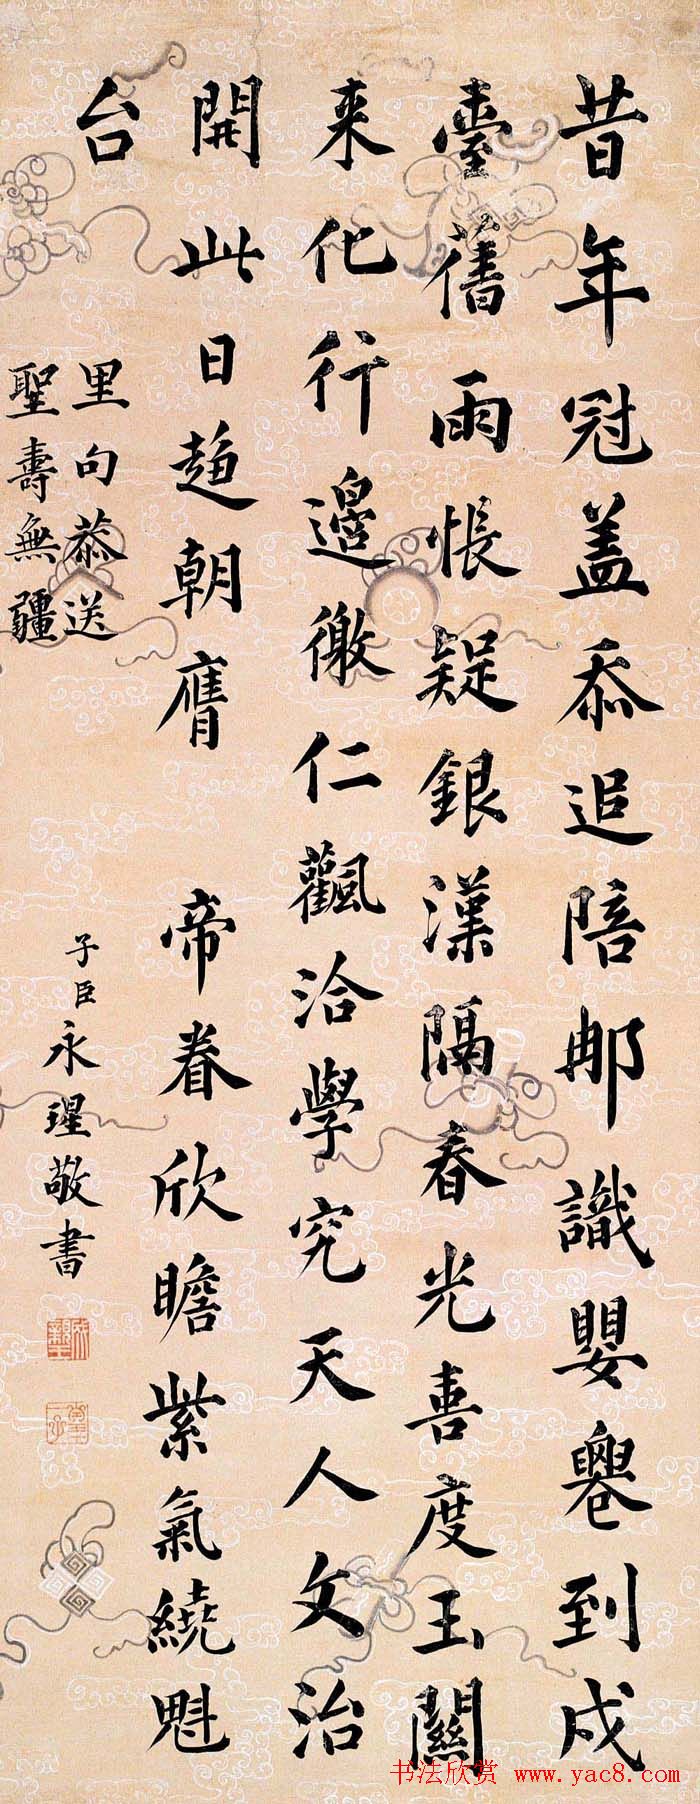 昔年冠盖忝追陪那識嬰到戍
臺舊雨悵疑銀漢隔春光喜度玉關
来化行邊徼仁飌洽學究天人文治
開此日趍朝膺 帝眷欣瞻紫氣繞魁
台
里句恭送
聖壽無疆
子臣永瑆敬書
成親王
书法欣赏 www.yac8.com